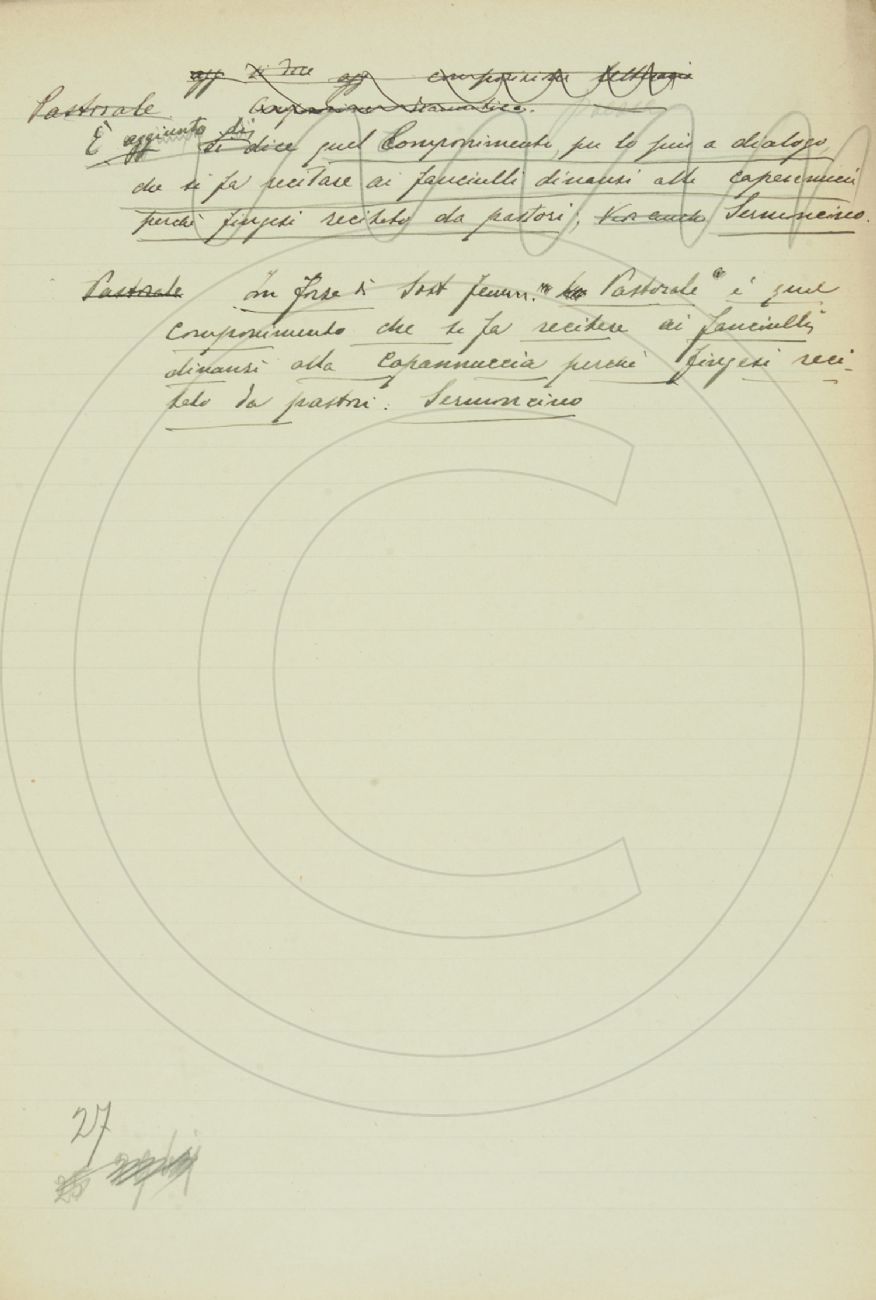 agg si dice agg componimento
Pastorale Componimento drammatico.
È agg aggiunto di si dice quel Componimento, per lo più a dialogo,
che si fa recitare ai fanciulli dinanzi alla capannuccia
perchè fingesi recitato da pastori; Sermoncino.
Pastorale In forza di Sost femm. "la Pastorale" è quel
componimento che si fa recitare ai fanciulli
dinanzi alla Capannuccia perchè fingesi reci-
tato da pastori. Sermoncino
27